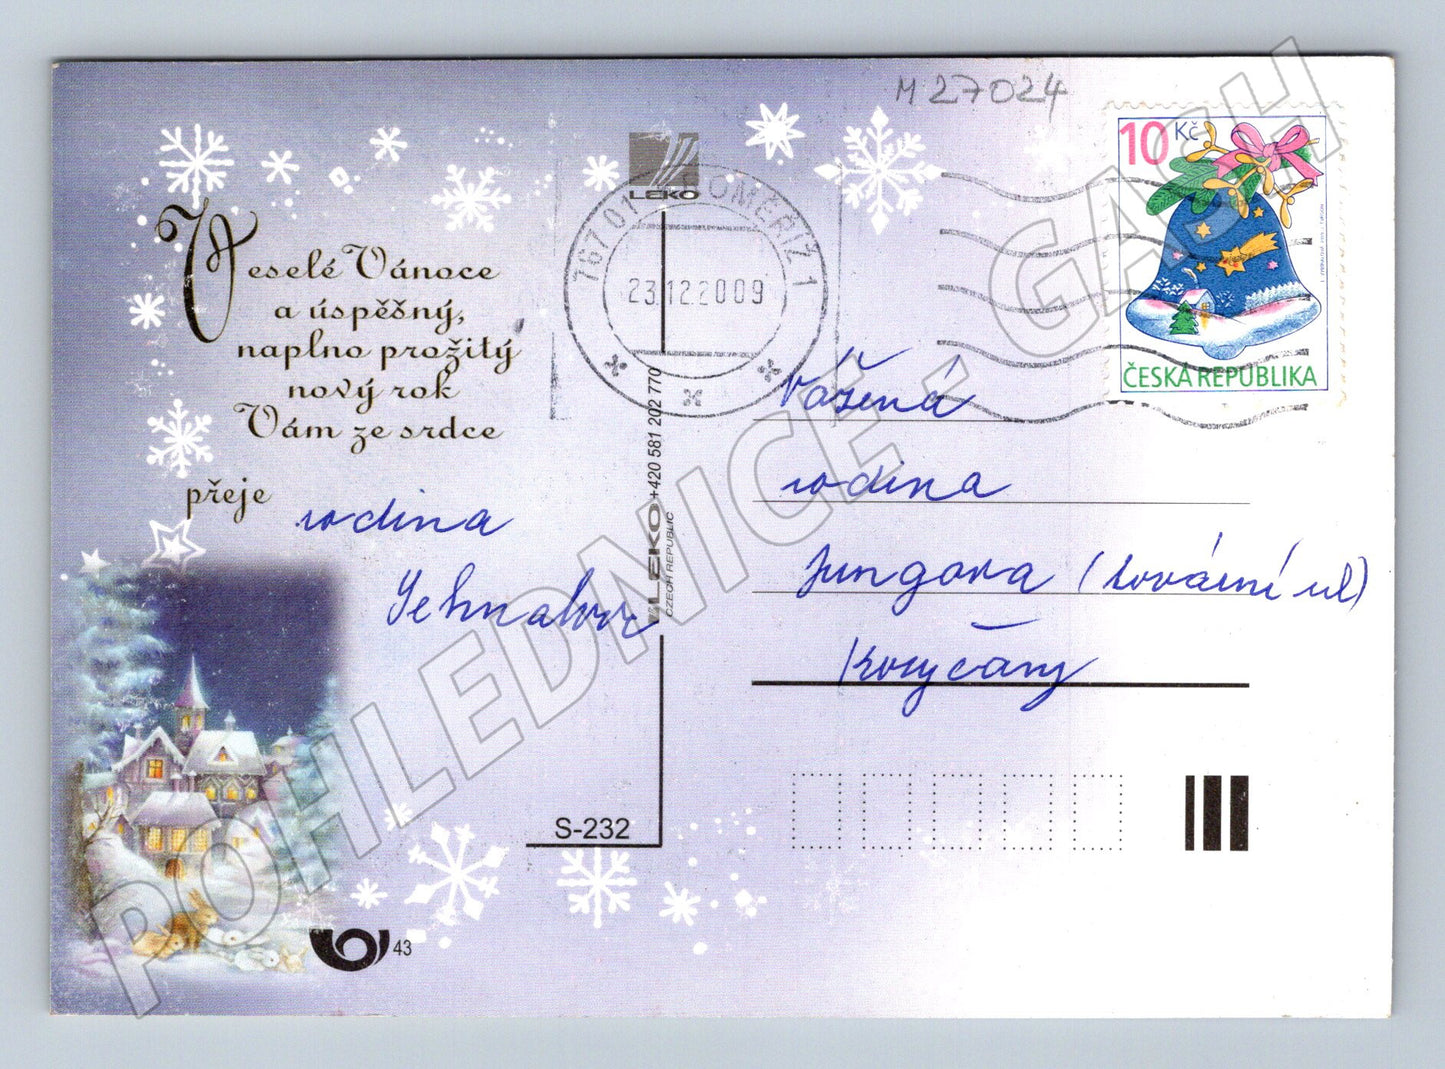 M 27024
10 Kč
ČESKÁ REPUBLIKA
LEKO
767 01 KROMĚŘÍŽ 1
23.12.2009
Veselé Vánoce
a úspěšný,
naplno prožitý
nový rok
Vám ze srdce
přeje
rodina
Vážená
rodina
Jungova (
ul)
Koryčany
LEKO +420 581 202 770
CZECH REPUBLIC
S-232
43
POHLEDNICE - GASH